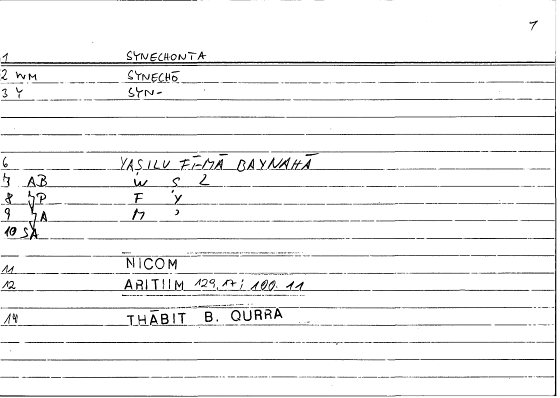 1
1 SYNECHONTA
2 WM SYNECHŌ
3 Y SYN-
6 YAṢILU FĪ-MĀ BAYNAHĀ
7 AB W Ṣ L
8 P F Y
9 A M ʾ
10 SA
11 NICOM
12 ARITIIM 129.17; 100.11
14 THĀBIT B. QURRA